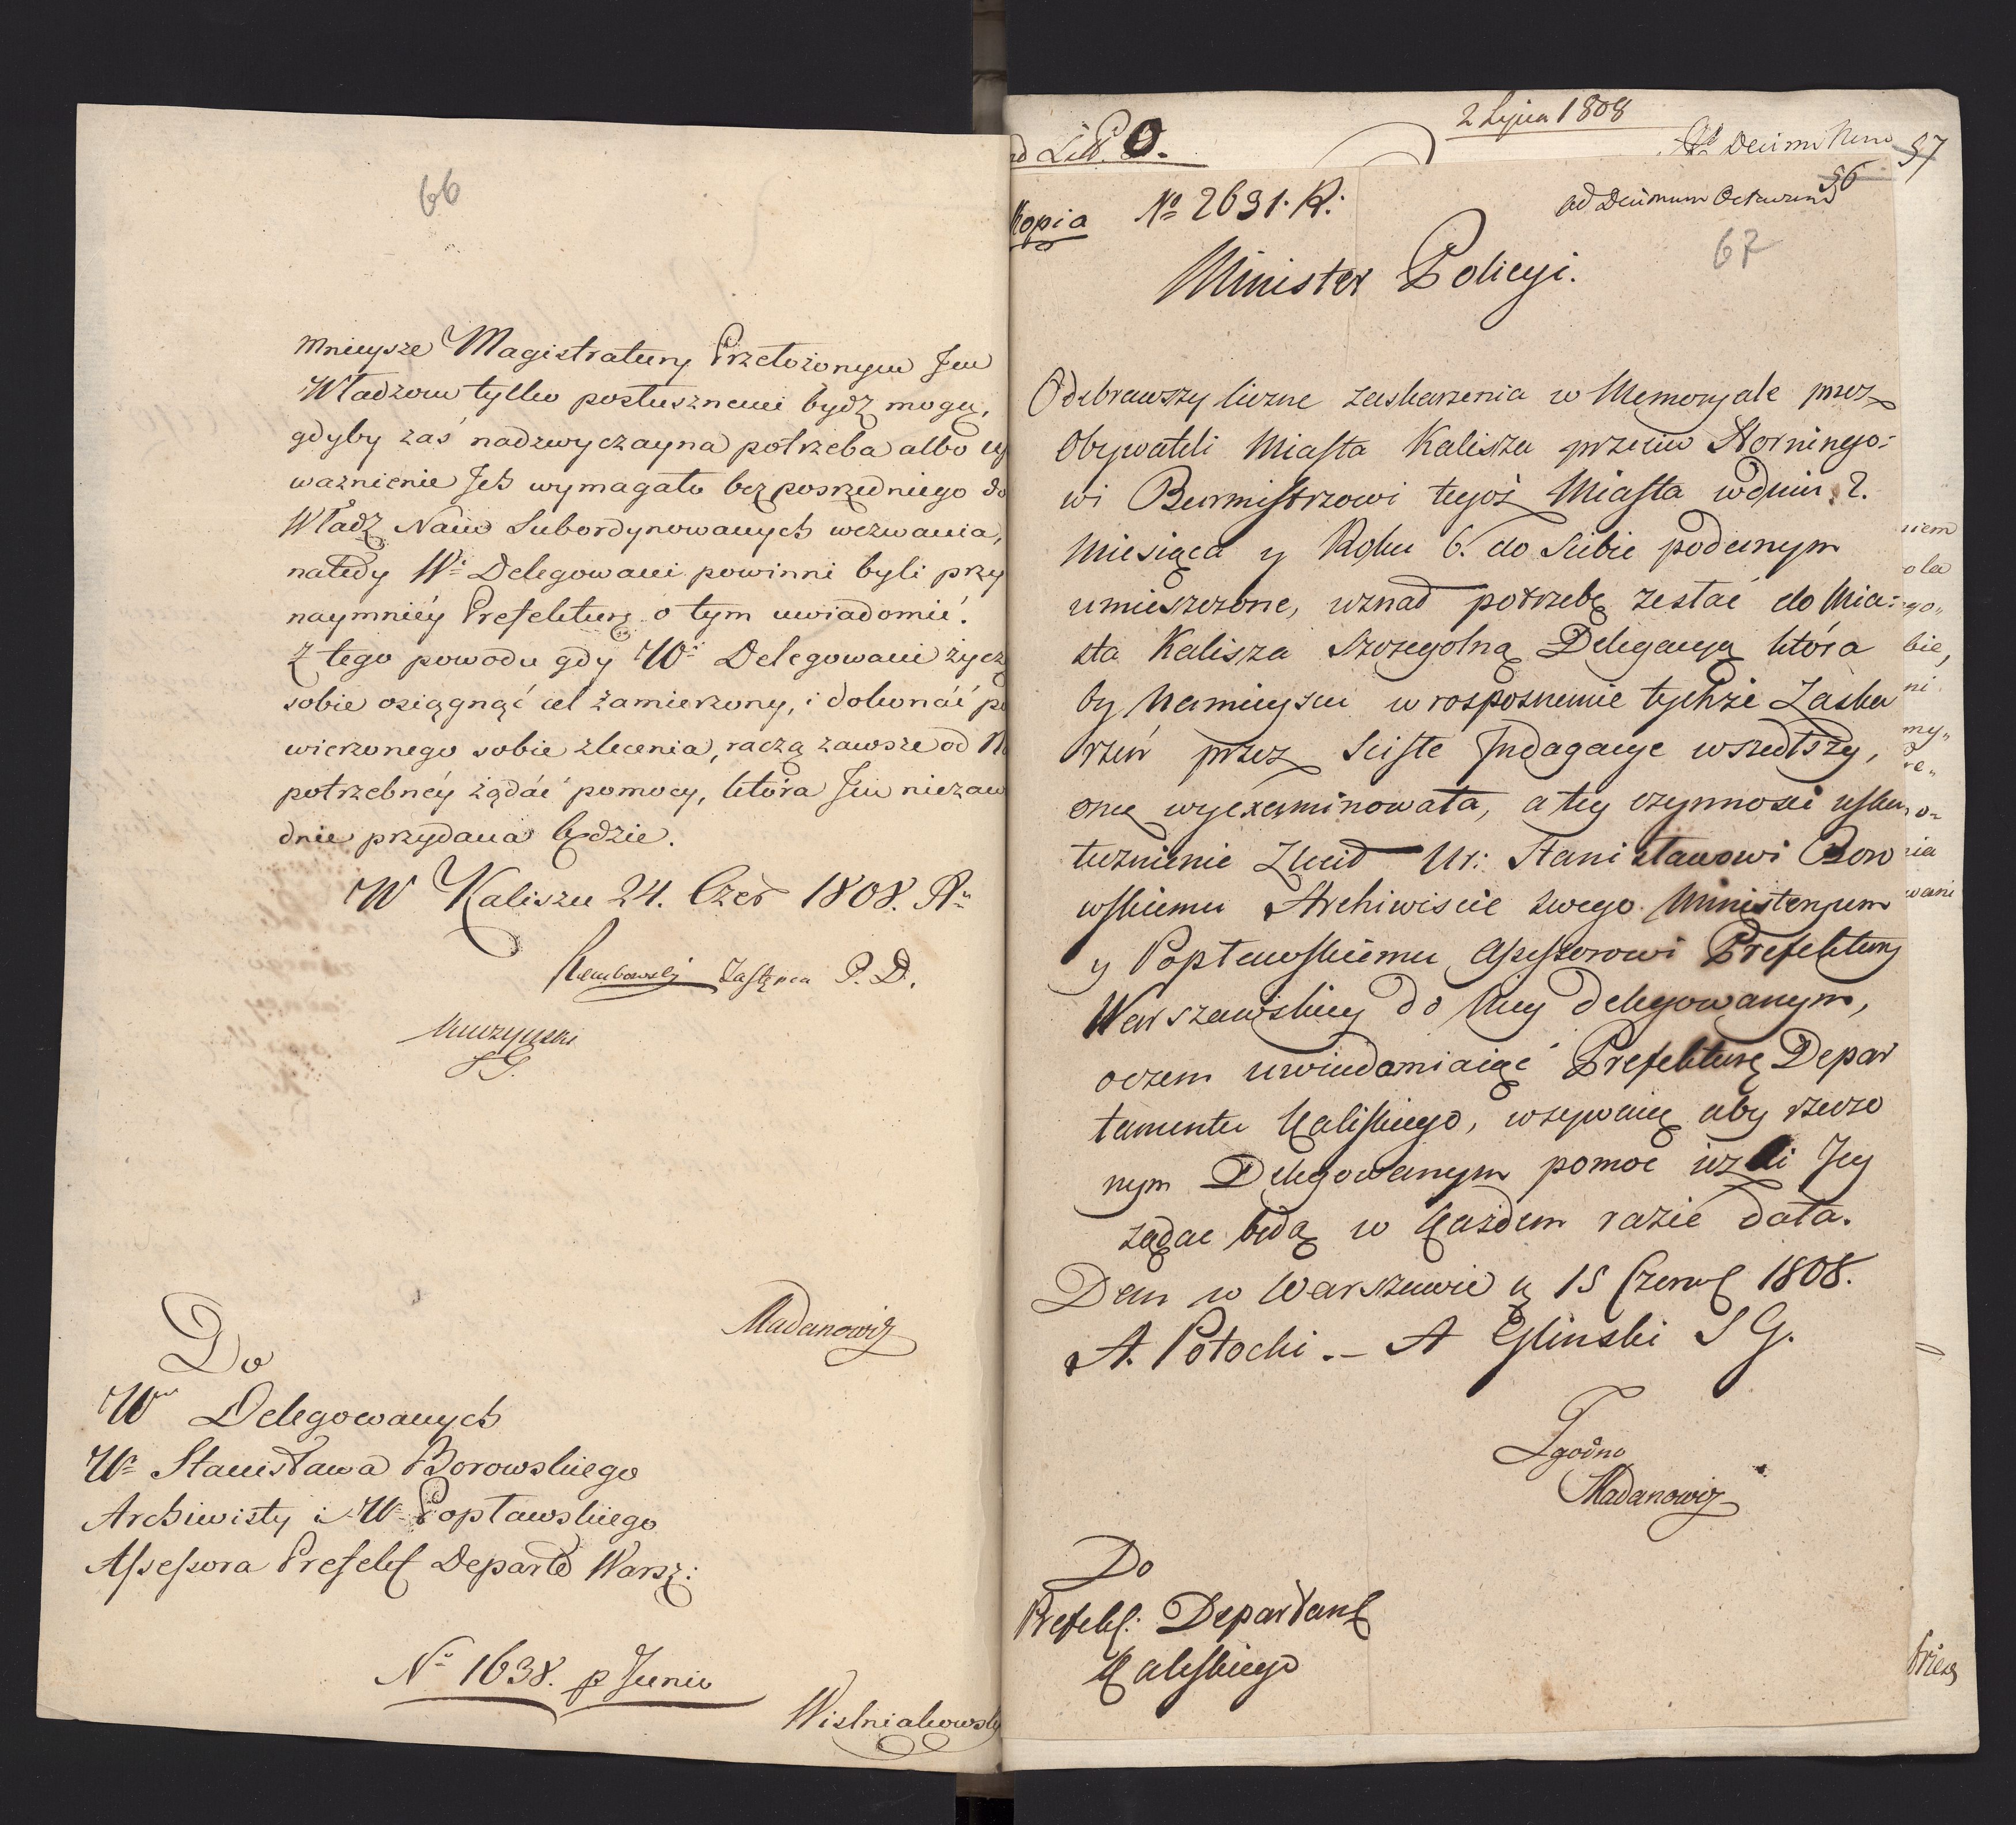 66
mnieysze Magistratury Przełożonym Im
Władzom tylko posłusznemi bydź mogą,
gdyby zaś nadzwyczayna potrzeba albo
ważnienie Ich wymagało bezposrzedniego do
Władz Nam Subordynowanych wezwania,
natedy W: Delegowani powinni byli przy
naymniéy Prefekturę o tym uwiadomić.
Z tego powodu gdy W: Delegowani życzą
sobie osiągnąć cel zamierzony, i dokonać
wierzonego sobie zlecenia, raczą zawsze od
potrzebnéy żądać pomocy, która Im niezaw
dnie przydana będzie.
W Kaliszu 24. Czer 1808. R
Rembowski Zastępca P. D.
SG.
Madanowicz
Do
W Delegowanych
W: Stanisława Borowskiego
Archiwisty i W Popławskiego
Assessora Prefekt Departo Warsz:
No 1638. p Junio
Wiśniakowsk
2 Lipca 1808
ad Litt. O.
Ad Decimu Nono 57
56
Kopia No 2631. R:
ad Decimum Octavum
67
Minister Policyi.
Odebrawszy liczne zaskarzenia w Memoryale przez
Obywateli Miasta Kalisza przeciw Horningo:
wi Burmistrzowi tegoż Miasta w dniu 2.
Miesiąca y Roku b. do Siebie podanym
umieszczone, uznał potrzebę zesłać do Mia:
sta Kalisza Szczegolną Delegacyą która
by na mieyscu w rospoznanie tychże Zaska
rzeń przez Scisłe Indagacye wszedłszy,
onę wyexaminowała, a tey czynnosci usku
tecznienie Zlecił Ur: Stanisławowi Boro
wskiemu Archiwiscie swego Ministeryum
y Popławskiemu Assessorowi Prefektury
Warszawskiey do Niey delegowanym,
oczem uwiadomiaiąc Prefekturę Depar
tamentu Kaliskiego, wzywam aby rzeczo
nym Delegowanym pomoc iezli Jey
żądac będą w każdem razie dała.
Dan w Warszawie d 15 Czerwc 1808.
A. Potocki. – A Gliński S G.
Zgodno
Madanowicz
Do
Prefekt: Departam
Kaliskiego